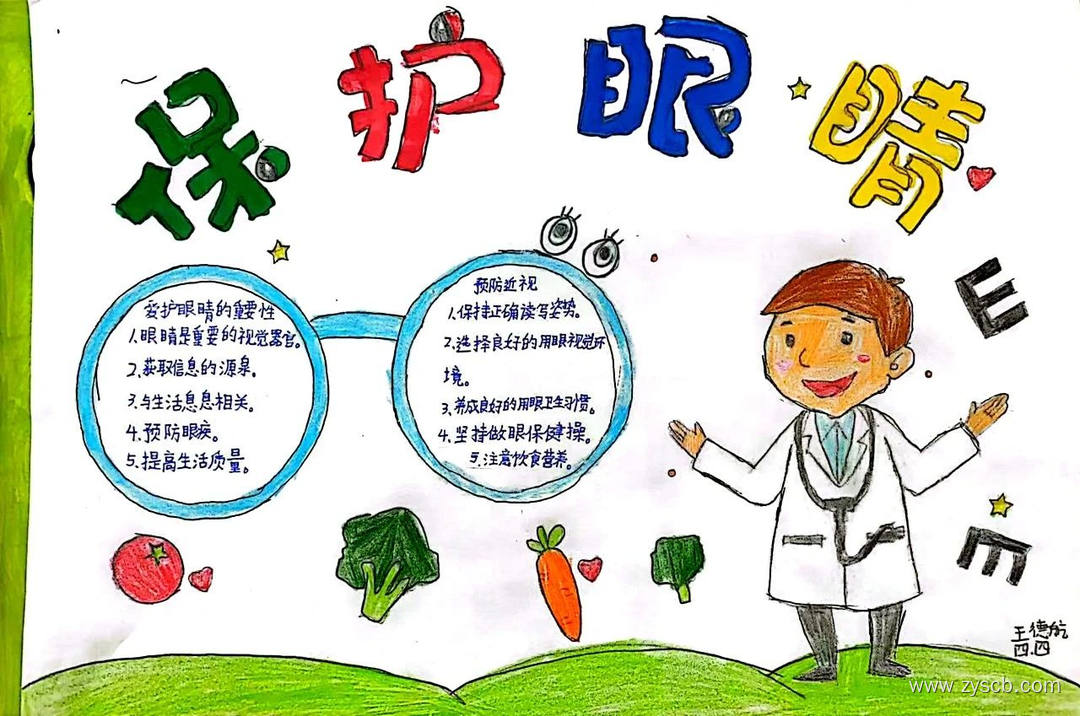 保护眼睛
爱护眼睛的重要性
1.眼睛是重要的视觉器官。
2.获取信息的源泉。
3.与生活息息相关。
4.预防眼疾。
5.提高生活质量。
预防近视
1.保持正确读写姿势。
2.选择良好的用眼视觉环
境。
3.养成良好的用眼卫生习惯。
4.坚持做眼保健操。
5.注意饮食营养。
E
E
王德航
四.四
www.zyscb.com